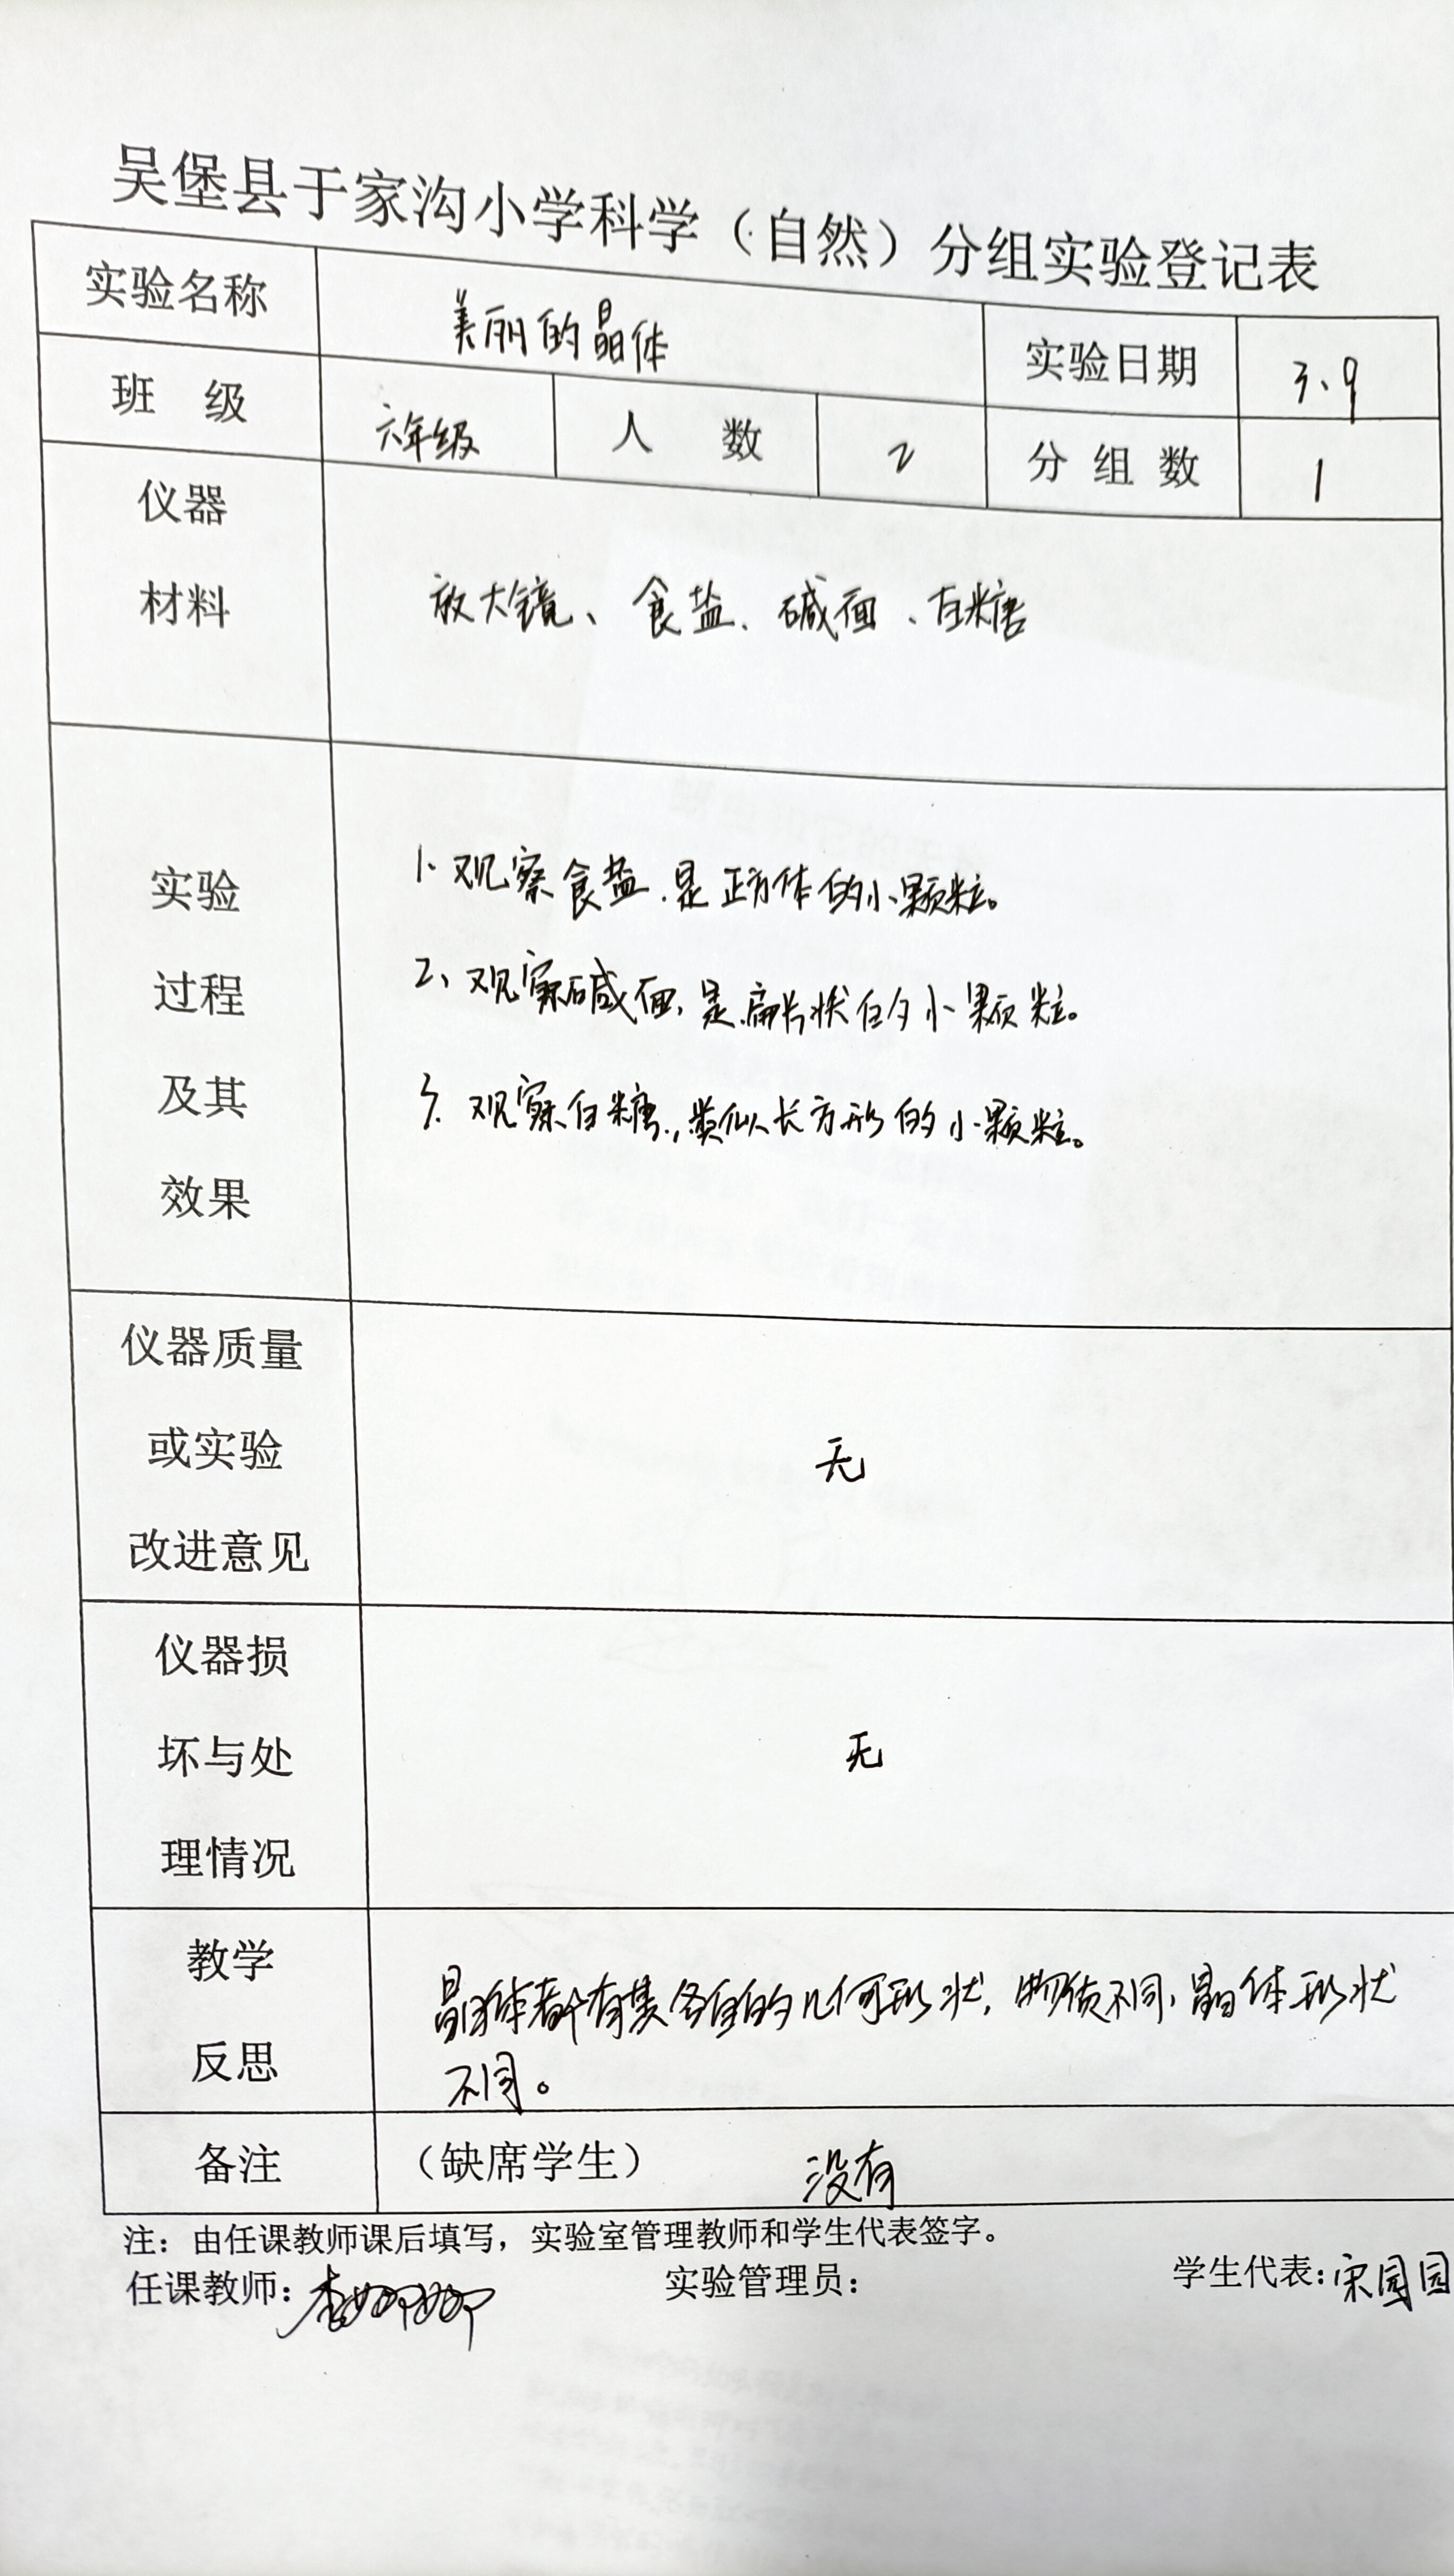 吴堡县于家沟小学科学（自然）分组实验登记表
实验名称 美丽的晶体 实验日期 3、9
班 级 六年级 人 数 2 分 组 数 1
仪器
材料
放大镜、食盐、碱面、白糖
实验
过程
及其
效果
1、观察食盐，是正方体的小颗粒。
2、观察碱面，是扁片状的小颗粒。
3、观察白糖，类似长方形的小颗粒。
仪器质量
或实验
改进意见
无
仪器损
坏与处
理情况
无
教学
反思
晶体都有其各自的几何形状，物质不同，晶体形状
不同。
备注 （缺席学生） 没有
注：由任课教师课后填写，实验室管理教师和学生代表签字。
任课教师：李娜娜 实验管理员： 学生代表：宋园园